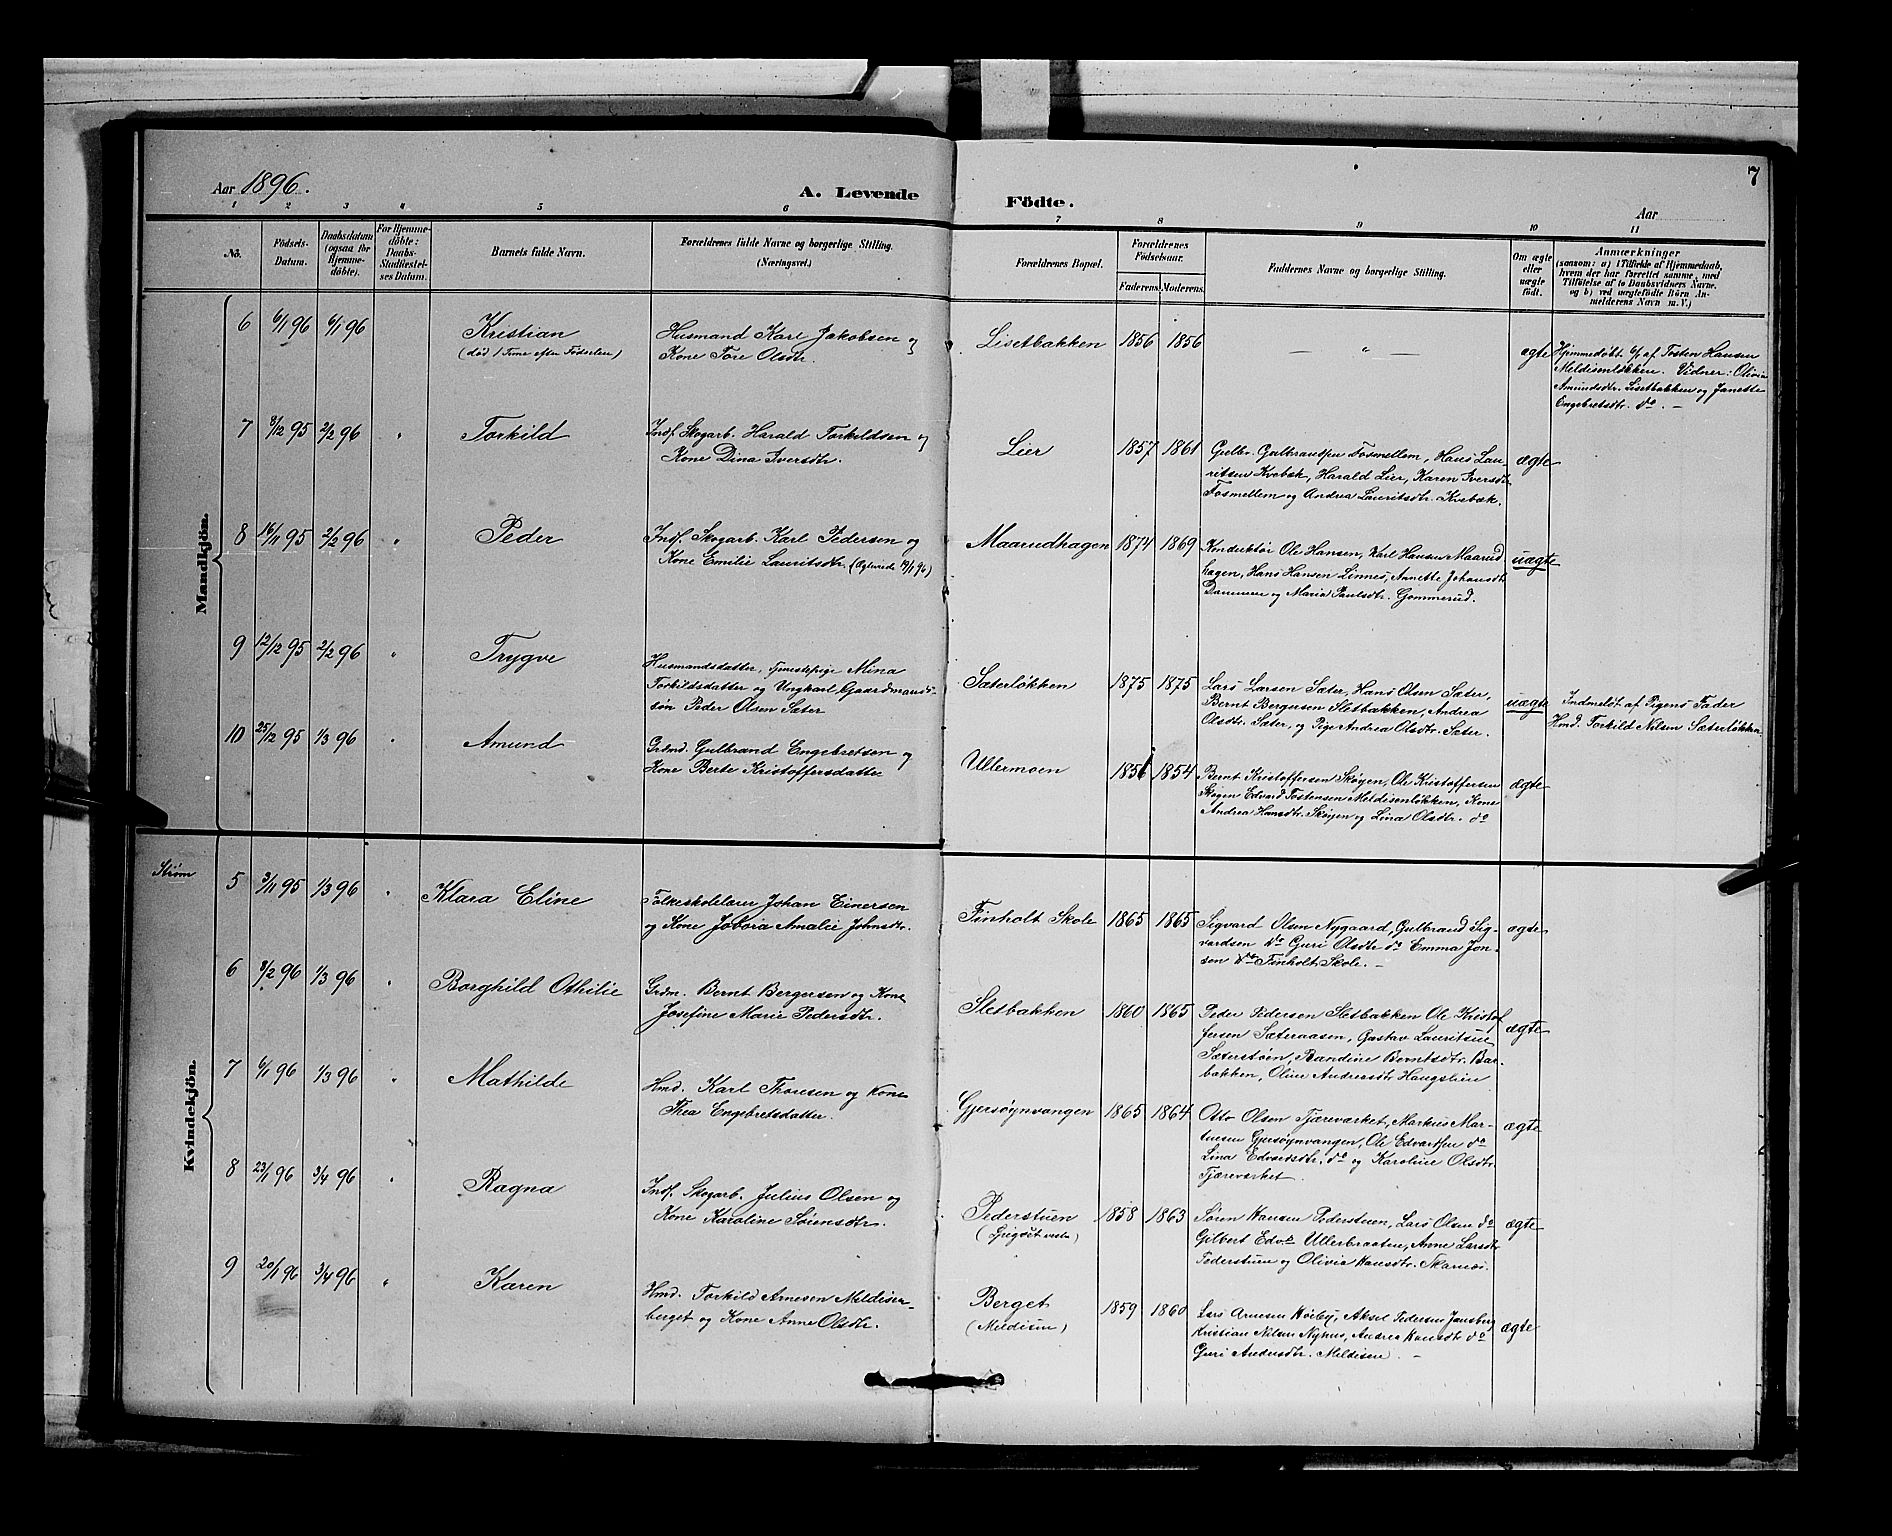 Aar 1896.
A. Levende
Födte.
7
Aar
1 2 3 4 5 6 7 8 9 10 11
No.
Födsels-Datum.
Daabsdatum (ogsaa for Hjemmedöbte).
For Hjemmedöbte: Daabs-Stadfæstelses Datum.
Barnets fulde Navn.
Forældrenes fulde Navne og borgerlige Stilling.
(Næringsvei.)
Forældrenes Bopæl.
Forældrenes Födselsaar.
Faderens. Moderens.
Faddernes Navne og borgerlige Stilling.
Om ægte eller uægte födt.
Anmærkninger
(saasom: a) i Tilfælde af Hjemmedaab,
hvem der har forrettet samme, med
Tilföielse af to Daabsvidners Navne,
og b) ved uægtefödte Börn An-
melderens Navn m. V.)
Mandkjön.
6 6/1 96 6/1 96 Kristian
(död 1 Time efter Fødselen)
Husmand Karl Jakobsen og
Kone Tore Olsdtr.
Lisetbakken 1856 1856 — " — ægte
Hjemmedøbt 6/1 af Tosten Hansen
Meldisenløkken. Vidner: Olivia
Amundsdtr. Lisetbakken og Janette
Engebretsdtr. do. —
7 8/12 95 2/2 96 " Torkild
Indf. Skogarb. Harald Torkildsen og
Kone Dina Iversdtr.
Lier 1857 1861
Gulbr. Gulbrandsen Fosmellem, Hans Lau-
ritsen Kvebæk, Harald Lier, Karen Iversdtr.
Fosmellem og Andrea Lauritsdtr. Kvebæk.
ægte
8 16/11 95 2/2 96 " Peder
Indf. Skogarb. Karl Pedersen og
Kone Emilie Lauritsdtr. (Ægteviede 19/1 96)
Maarudhagen 1874 1869
Konduktør Ole Hansen, Karl Hansen Maarud
hagen, Hans Hansen Linnes, Annette Johansdtr.
Dammen og Maria Paulsdtr. Gommerud.
uægte
9 12/12 95 2/2 96 " Trygve
Husmandsdatter, Tjenestepige Mina
Torkildsdatter og Ungkarl Gaardmands-
søn Peder Olsen Sæter
Sæterløkken 1875 1875
Lars Larsen Sæter, Hans Olsen Sæter,
Bernt Bergersen Sletbakken, Andrea
Olsdtr. Sæter, og Pige Andrea Olsdtr. Sæter.
uægte
Indmeldt af Pigens Fader
Hmd. Torkild Nilsen Sæterløkken
10 25/12 95 1/3 96 Amund
Grdmd. Gulbrand Engebretsen og
Kone Berte Kristoffersdatter
Ullermoen 1851 1854
Bernt Kristoffersen Skøyen, Ole Kristoffersen
Skøyen Edvard Tostensen Meldisenløkken, Kone
Andrea Hansdtr. Skøyen og Lina Olsdtr. do
ægte
Strøm
Kvindekjön.
5 3/11 95 1/3 96 " Klara Eline
Folkeskolelærer Johan Einersen
og Kone Jobora Amalie Johnsdtr.
Finholt Skole 1865 1865
Sigvard Olsen Nygaard, Gulbrand Sig-
vardsen do Guri Olsdtr do Emma Jon-
sen do Finholt Skole. —
ægte
6 8/2 96 1/3 96 " Borghild Othilie
Grdm. Bernt Bergersen og Kone
Josefine Marie Pedersdtr.
Sletbakken 1860 1865
Peder Pedersen Sletbakken Ole Kristof
fersen Sæteraasen, Gustav Lauritsen
Sæterstøen, Randine Berntsdtr. Bar-
bakken, Oline Andreasdtr Haugslien
ægte
7 6/1 96 1/3 96 " Mathilde
Hmd. Karl Thonsen og Kone
Thea Engebretsdatter.
Gjersøynvangen 1865 1864
Otto Olsen Tjæreværket, Markus Mar-
tinsen Gjersøynvangen, Ole Edvardsen do
Lina Edvardsdtr. do og Karoline Olsdtr.
Tjæreværket.
ægte
8 23/1 96 3/4 96 " Ragna
Indf. Skogarb. Julius Olsen og
Kone Karoline Sørensdtr.
Pederstuen 1858 1863
Søren Hansen Pederstuen, Lars Olsen do
Gilbert Edv. Ullerbraaten, Anne Larsdtr
Pederstuen og Olivia Hansdtr. Skarnes.
ægte
9 20/1 96 3/4 96 " Karen
Hmd. Torkild Arnesen Meldisen-
berget og Kone Anne Olsdtr.
Berget
(Meldisen)
1859 1860
Lars Arnesen Høiby, Aksel Pedersen Jansberg
Kristian Nilsen Nyhus, Andrea Hansdtr do
Guri Andersdtr. Meldisen. —
ægte